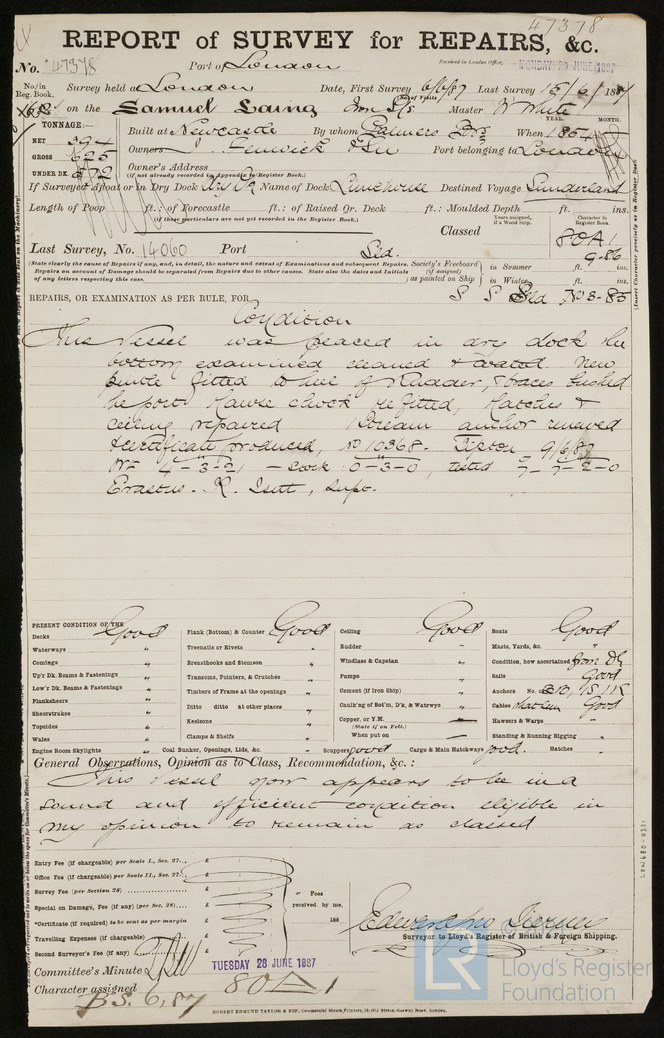 47378
REPORT of SURVEY for REPAIRS, &c.
No. 47378 Port of London Received in London Office, MONDAY 20 JUNE 1887
No. in Reg. Book. Survey held at London Date, First Survey 6/6/87 Last Survey 15/6/1887
on the Samuel Laing Iron S/s Master W White
TONNAGE:— YEAR. MONTH.
NET 394 Built at Newcastle By whom Palmers Bros When 1854
GROSS 625 Owners J. Fenwick & Son Port belonging to London
UNDER DK. 572 Owner's Address
(if not already recorded in Appendix to Register Book.)
If Surveyed Afloat or in Dry Dock Dry Dk Name of Dock Limehouse Destined Voyage Sunderland
Length of Poop ft.: of Forecastle ft.: of Raised Qr. Deck ft.: Moulded Depth ft. ins.
(if these particulars are not yet recorded in the Register Book.)
Years assigned, if a Wood Ship. Character in Register Book.
Classed 80A1
9-86
Last Survey, No. 14060 Port Sld.
(State clearly the cause of Repairs if any, and, in detail, the nature and extent of Examinations and subsequent Repairs. Society's Freeboard in Summer ft. ins.
Repairs on account of Damage should be separated from Repairs due to other causes. State also the dates and Initials (if assigned)
of any letters respecting this case. as painted on Ship in Winter ft. ins.
REPAIRS, OR EXAMINATION AS PER RULE, FOR S S Sld No 3-85
Condition
This Vessel was placed in dry dock the
bottom examined cleaned & coated. New
pintle fitted to heel of Rudder, & braces bushed
the port Hawse chock re fitted, Hatches &
ceiling repaired Stream anchor renewed
& certificate produced, No 10368. Tipton 9/6/87
Wt 4-3-21 – stock 0-3-0, tested 7-7-2-0
Erastus. R. Isitt, Supt.
PRESENT CONDITION OF THE
Decks Good Plank (Bottom) & Counter Good Ceiling Good Boats Good
Waterways " Treenails or Rivets " Rudder " Masts, Yards, &c. "
Comings " Breasthooks and Stemson " Windlass & Capstan " Condition, how ascertained from Dk
Up'r Dk. Beams & Fastenings " Transoms, Pointers, & Crutches " Pumps " Sails Good
Low'r Dk. Beams & Fastenings " Timbers of Frame at the openings " Cement (if Iron Ship) " Anchors No. 3B, 1S, 1K
Planksheers " Ditto ditto at other places " Caulk'ng of Bot'm, D'k, & Watrwys " Cables Good
Sheerstrakes " Keelsons " Copper, or Y.M. — Hawsers & Warps "
Topsides " (State if on Felt.)
Wales " Clamps & Shelfs " When put on — Standing & Running Rigging "
Engine Room Skylights " Coal Bunker, Openings, Lids, &c. " Scuppers good Cargo & Main Hatchways good. Hatches "
General Observations, Opinion as to Class, Recommendation, &c. :
This Vessel now appears to be in a
sound and efficient condition eligible in
my opinion to remain as classed
Entry Fee (if chargeable) per Scale I., Sec. 27... £
Office Fee (if chargeable) per Scale II., Sec. 27... £
Survey Fee (per Section 28) £ Fees
Special on Damage, Fee (if any) (per Sec. 28) £ received by me,
*Certificate (if required) to be sent as per margin £ 188
Travelling Expenses (if chargeable) £
Second Surveyor's Fee (if any) £
Surveyor to Lloyd's Register of British & Foreign Shipping.
Committee's Minute TUESDAY 28 JUNE 1887
Character assigned 80A1
B.S. 6,87
ROBERT EDMUND TAYLOR & SON, Commercial Steam Printers, 19, Old Street, Goswell Road, London.
LR Lloyd's Register
Foundation
LON680-0331
(Insert Character precisely as in Register Book.)